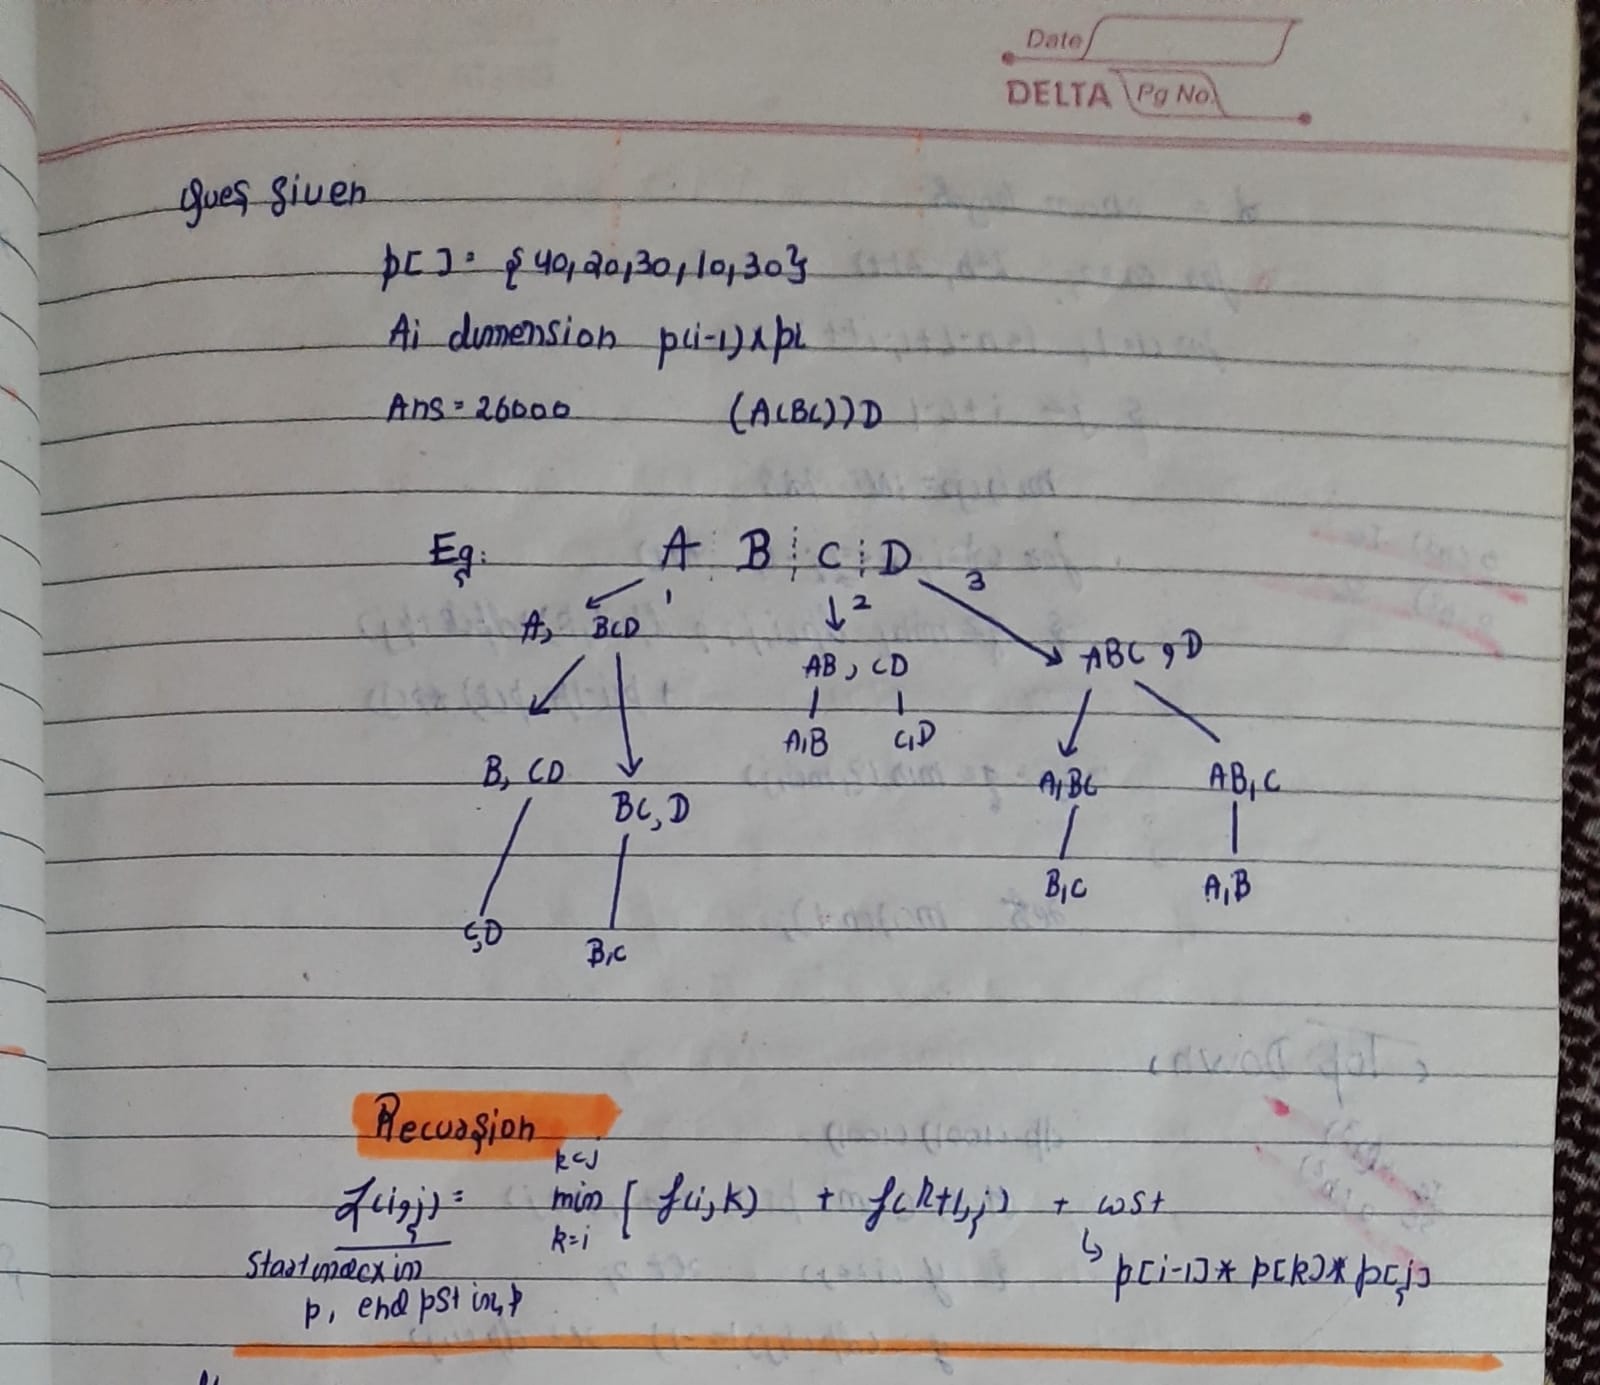 Date
DELTA Pg No.
Ques given
p[ ] = {40,20,30,10,30}
Ai dimension p(i-1)xpi
Ans = 26000 (A(BC))D
Eg: A B C D
1 2 3
A, BCD
AB, CD
ABC, D
A,B C,D
B, CD
BC, D
A,BC
AB,C
B,C A,B
C,D
B,C
Recursion
k<j
f(i,j) = min [ f(i,k) + f(k+1,j) + cost
k=i
Start index in
p, end pst in p
p[i-1]* p[k]* p[j]